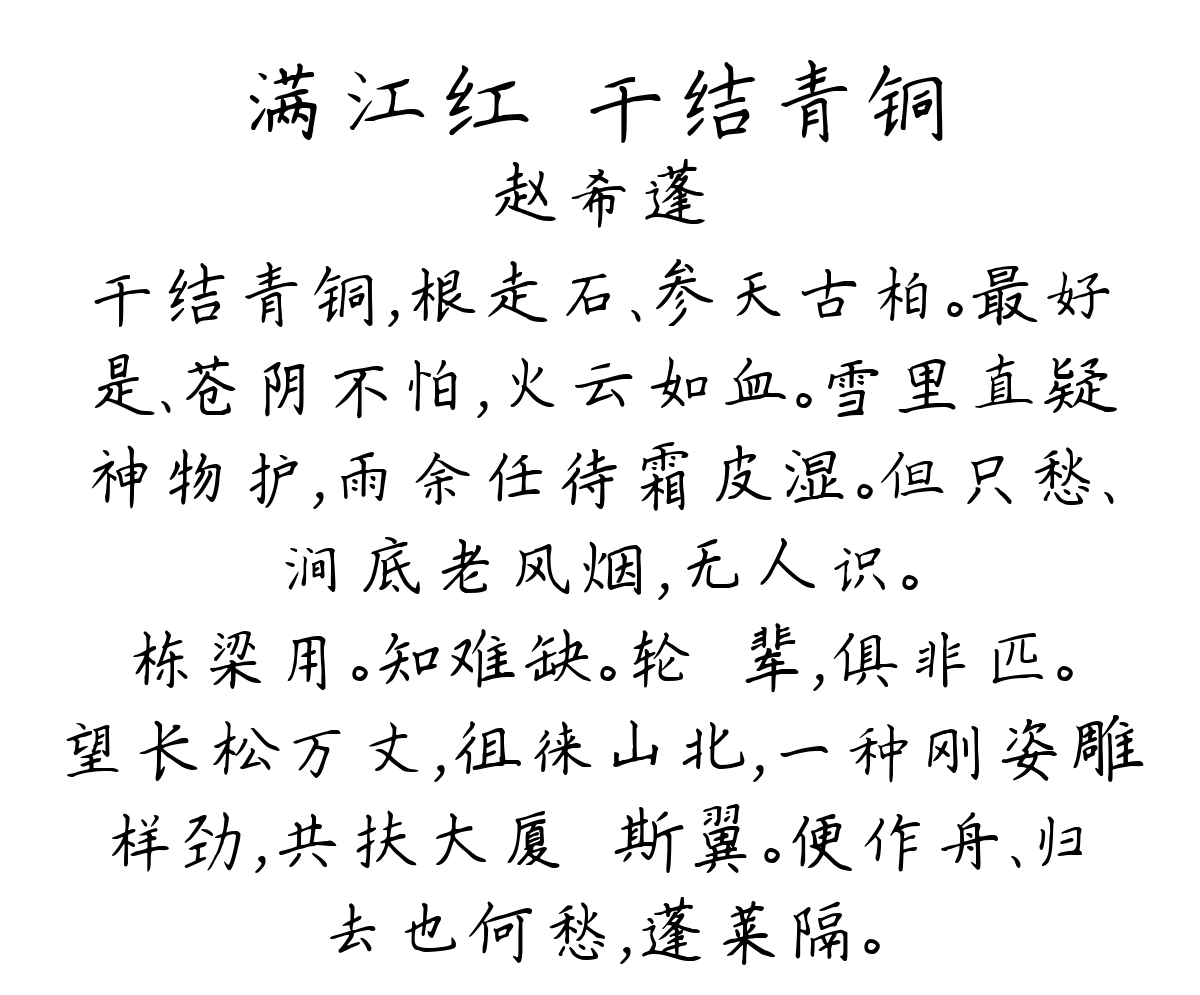 满江红 干结青铜
赵希蓬
干结青铜,根走石、参天古柏。最好
是、苍阴不怕,火云如血。雪里直疑
神物护,雨余任待霜皮湿。但只愁、
涧底老风烟,无人识。
栋梁用。知难缺。轮 辈,俱非匹。
望长松万丈,徂徕山北,一种刚姿雕
样劲,共扶大厦 斯翼。便作舟、归
去也何愁,蓬莱隔。